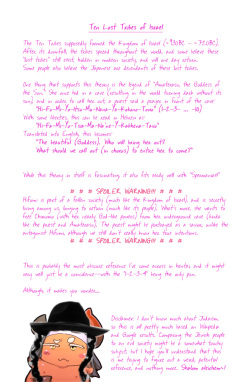 Ten Lost Tribes of Israel
The Ten Tribes supposedly formed the Kingdom of Israel (~930BC - ~730BC)
After its downfall, the tribes spread throughout the world, and some believe these
"lost tribes" still exist, hidden in modern society, and will one day return.
Some people also believe the Japanese are descendants of these lost tribes.
One thing that supports this theory is the legend of "Amaterasu, the Goddess of
the Sun". She once hid in a cave (resulting in the world turning dark without its
sun), and in order to call her out, a priest said a phrase in front of the cave:
With some tweaks, this can be read in Hebrew as:
Translated into English, this becomes:
"The beautiful (Goddess), Who will bring her out?
What should we call out (in chorus) to entice her to come?"
While this theory in itself is fascinating, it also fits nicely well with
# # # SPOILER WARNING!!! # # #
Hifumi is part of a fallen society (much like the Kingdom of Israel), and is secretly
living among us, longing to return (much like its people). What's more, she wants to
free
like the priest and Amaterasu). The priest might be portrayed as a villain, unlike the
antagonist Hifumi, although we still don't really know her true intentions.
# # # SPOILER WARNING!!! # # #
This is probably the most obscure reference I've come across in hentai, and it might
very well just be a coincidence--with the 1-2-3-4 being the only pun.
Although, it makes you wonder...
Disclaimer: I don't know much about Judaism,
so this is all pretty much based on Wikipedia
and Google results. Comparing the Jewish people
to an evil society might be a somewhat touchy
subject, but I hope you'll understand that this
is me trying to figure out a weird, potential
reference, and nothing more. Shalom aleichem!